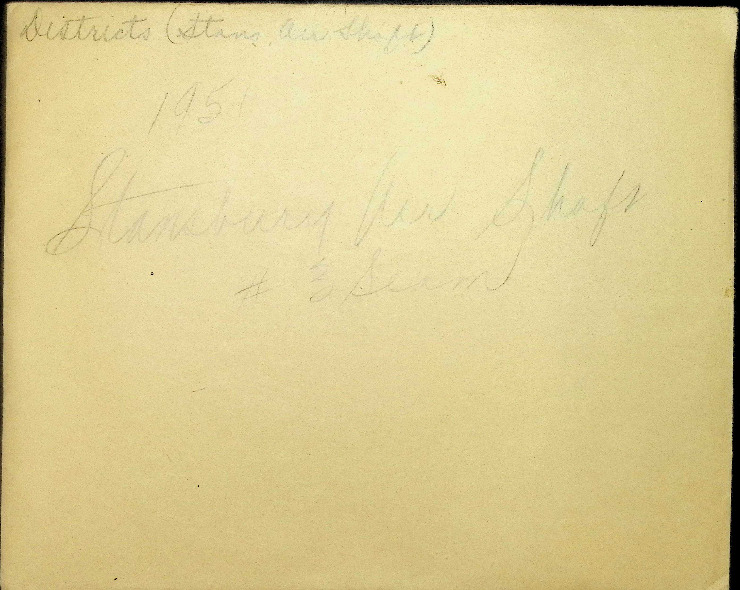 Districts (Stans. Air Shaft)
1951
Stansbury Air Shaft
# 3 Seam